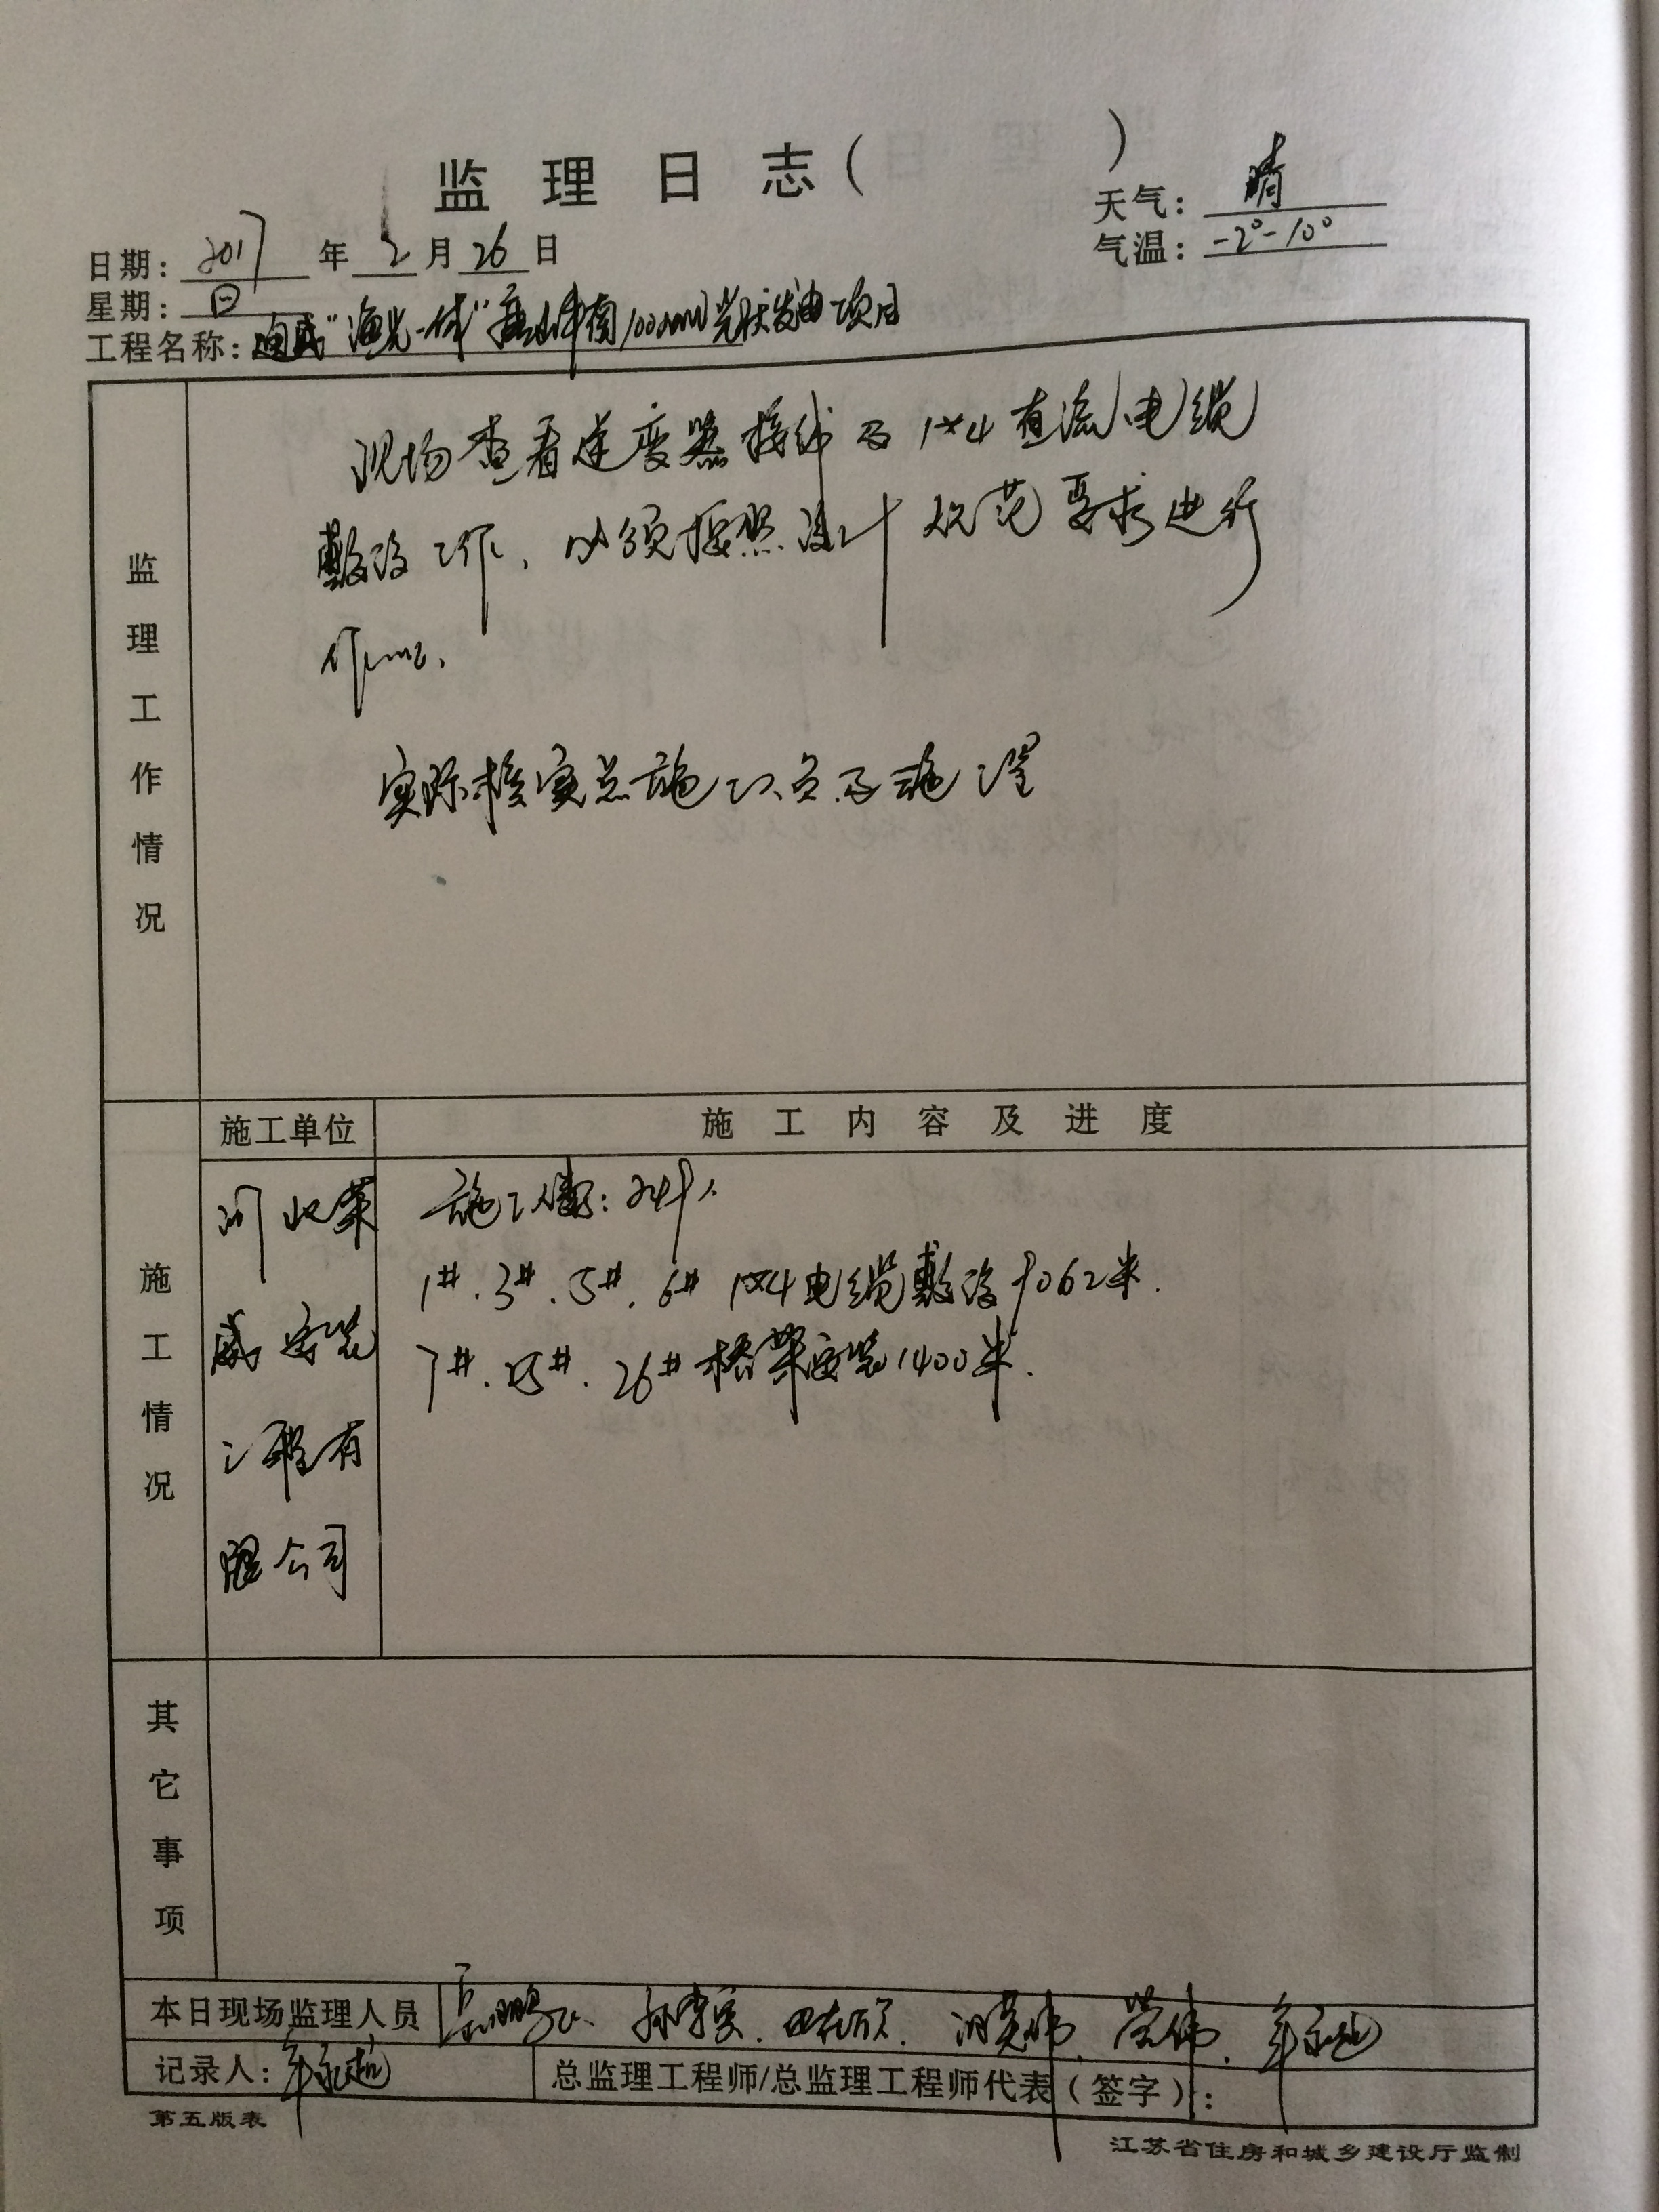 监理日志（ ）
天气：晴
日期：2017年2月26日
气温：-2°-10°
星期：日
工程名称：通威“渔光一体”唐山丰南100MW光伏发电项目
监理工作情况
现场查看逆变器接线及1×4直流电缆
敷设工作，必须按照设计规范要求进行
作业。
实际核实总施工人员及施工
施工单位
施工内容及进度
施工情况
威安装
工程有
限公司
施工人员：24人
1#、3#、5#、6# 1×4电缆敷设9062米.
7#、25#、26#桥架安装1400米.
其它事项
本日现场监理人员
记录人：
总监理工程师/总监理工程师代表（签字）：
第五版表
江苏省住房和城乡建设厅监制